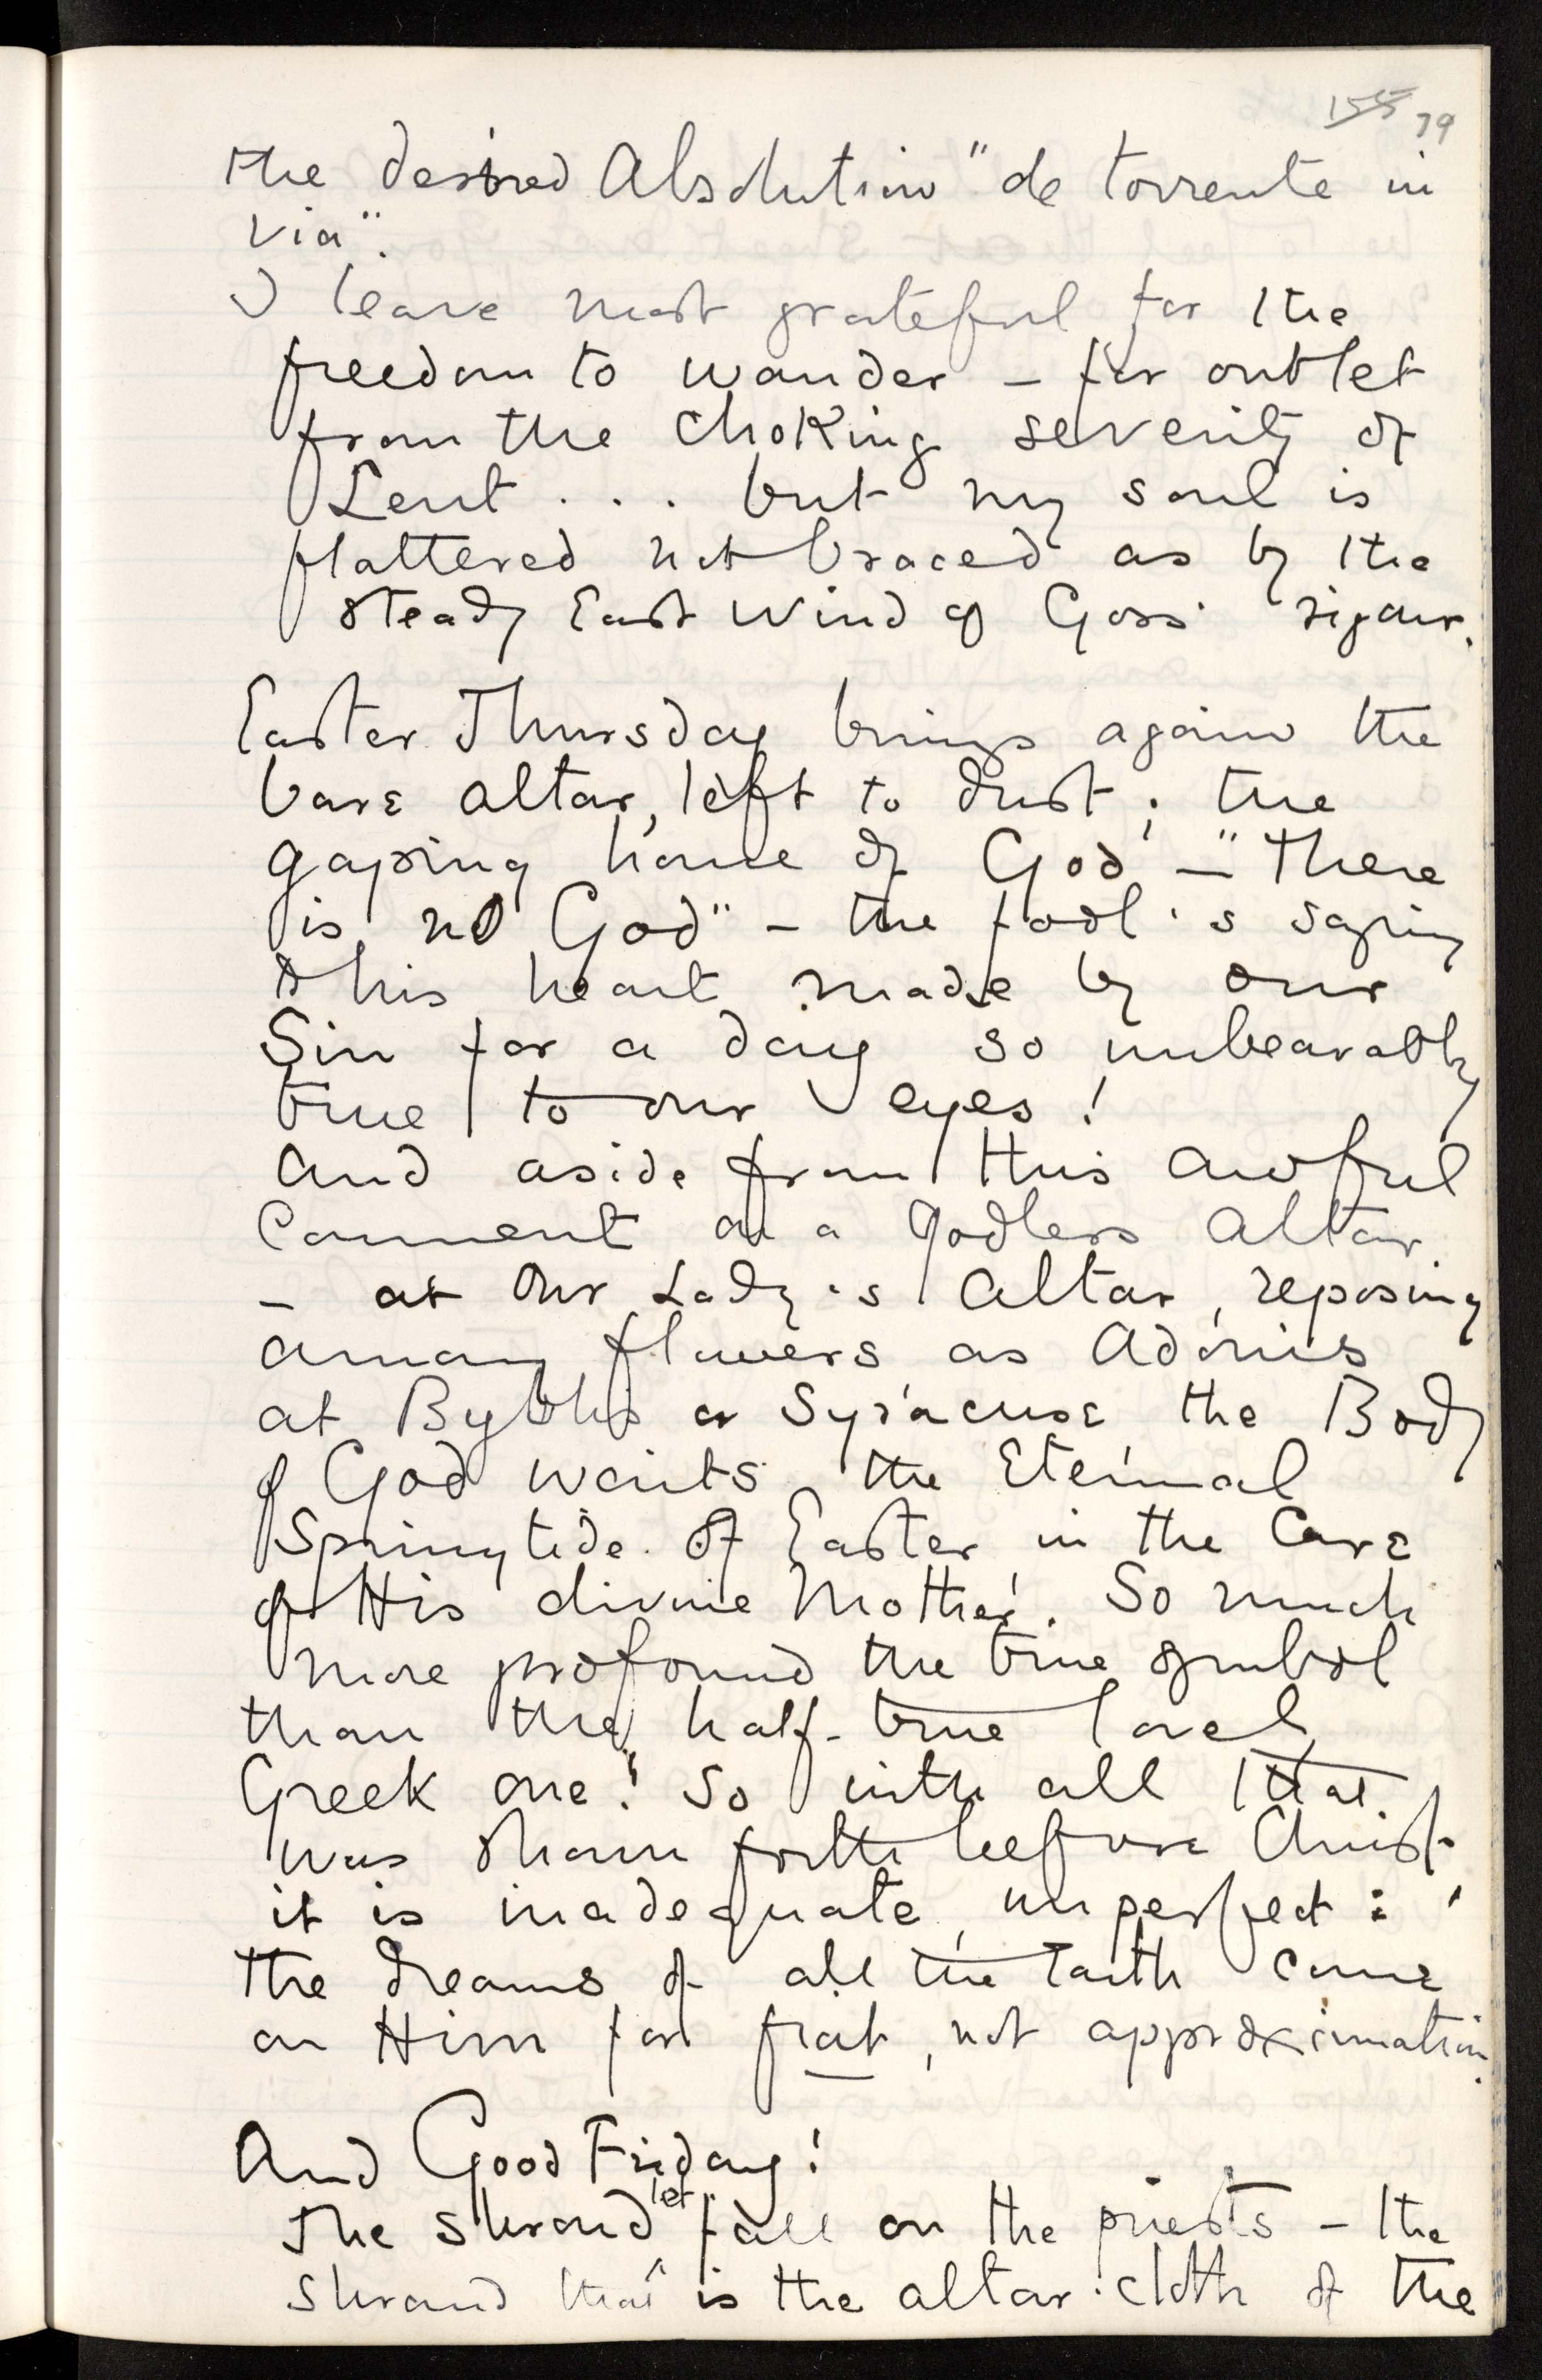 155 79
the desired Absolution "de torrente in
via".
I leave most grateful for the
freedom to wander – for outlet
from the choking severity of
Lent . . . but my soul is
flattered not braced as by the
steady East Wind of Goss' rigour.
Easter Thursday brings again the
bare altar, left to dust; the
gaping house of God – "There
is no God" – the fool's saying
this heart made by our
Sin for a day so unbearably
true to our eyes!
And aside from this awful
Comment on a godless altar
– at Our Lady's Altar, reposing
among flowers as Adonis
at Byblis or Syracuse the Body
of God waits the Eternal
Springtide of Easter in the Care
of His divine Mother. So much
more profound the true symbol
than the half-true lovely
Greek one! So with all that
was shown forth before Christ
it is inadequate, imperfect:
the dreams of all the Earth come
on Him for fiat, not approximation.
And Good Friday!
The shroud let fall on the priests – the
shroud that is the altar-cloth of the